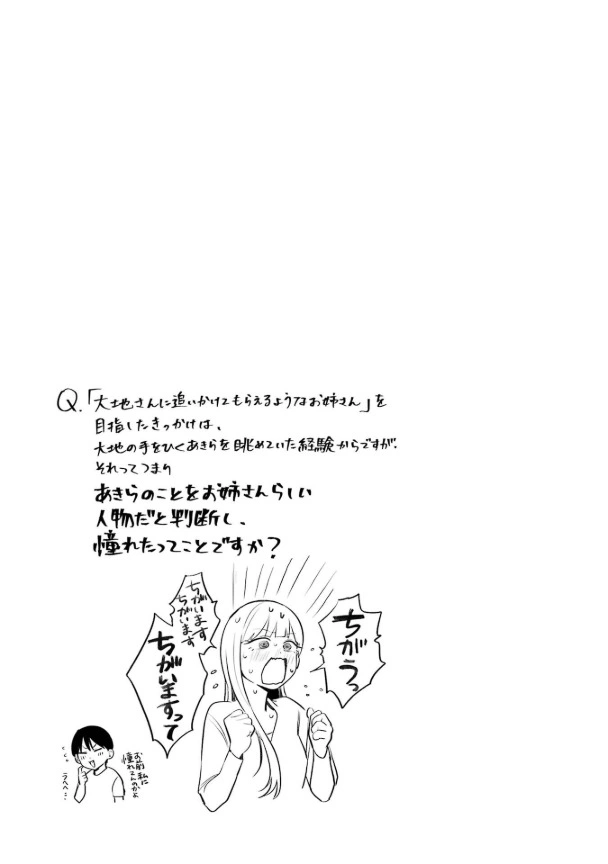 Q.「大地さんに追いかけてもらえるようなお姉さん」を
目指したきっかけは、
大地の手をひくあきらを眺めていた経験からですが、
それってつまり
あきらのことをお姉さんらしい
人物だと判断し、
憧れたってことですか?
ちがうっ
ちがいます
ちがいます
ちがいますって
お前 私に
憧れてんのかよ
うへへ…